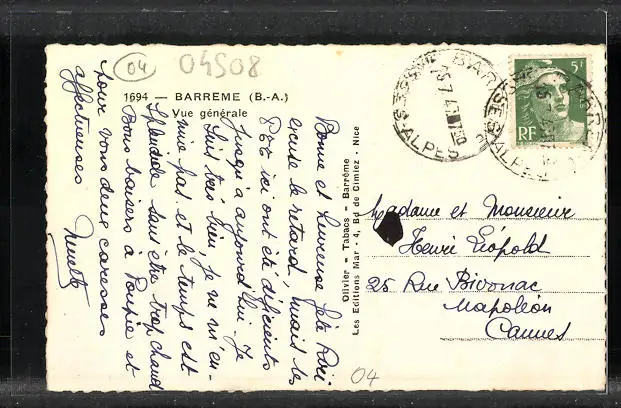 04
04508
1694 — BARREME (B.-A.)
Vue générale
Bonne et heureuse fête
excuse le retard, mais les
ici ont été déficients
jusqu'à aujourd'hui. Je
suis très bien, je ne m'en-
nuie pas et le temps est
splendide sans être trop chaud
Bons baisers à Poupée et
pour vous deux caresses
affectueuses
Olivier - Tabacs - Barrême
Les Editions Mar - 4, Bd de Cimiez - Nice
BARREME
BSES-ALPES
5F
RF
Madame et Monsieur
Henri Léopold
25 Rue Bivouac
Napoléon
Cannes
04